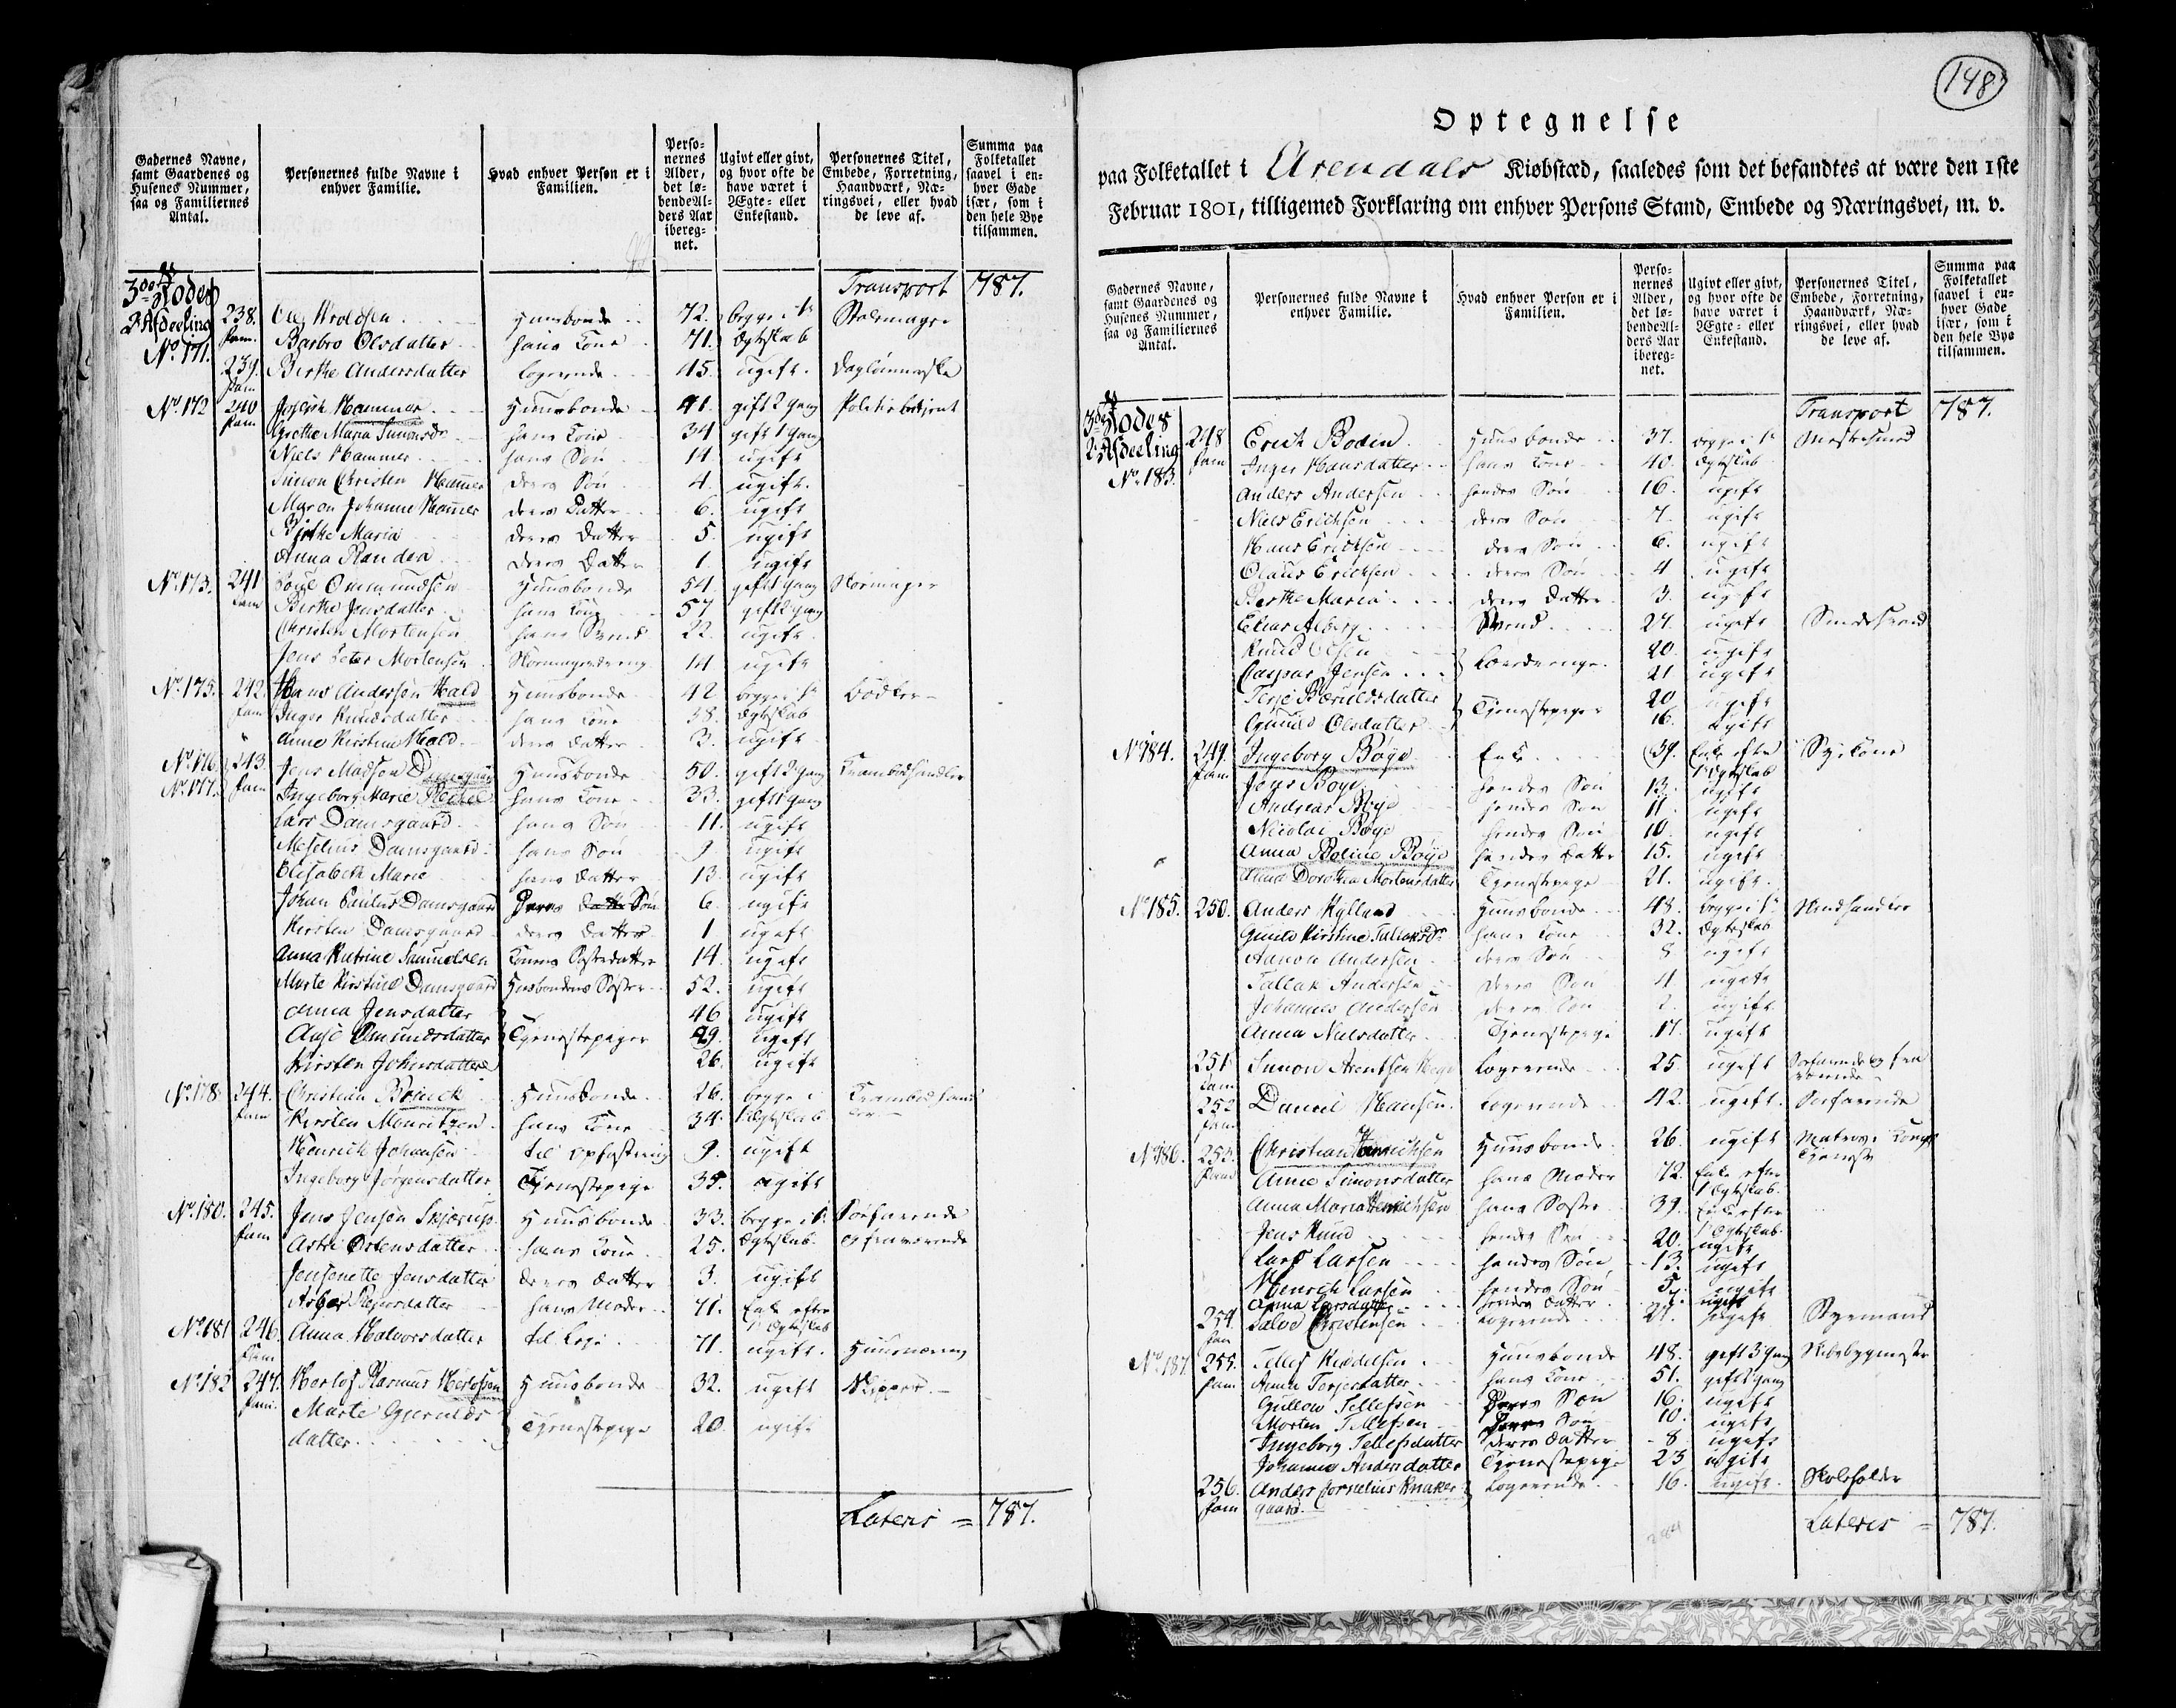 Gadernes Navne, samt Gaardenes og Husenes Nummer, saa og Familiernes Antal.
Personernes fulde Navne i enhver Familie.
Hvad enhver Person er i Familien.
Personernes Alder, det løbende Alders Aar iberegnet.
Ugivt eller givt, og hvor ofte de have været i Ægte- eller Enkestand.
Personernes Titel, Embede, Forretning, Haandværk, Næringsvei, eller hvad de leve af.
Summa paa Folketallet saavel i enhver Gade især, som i den hele Bye tilsammen.
3de Rodes Transport 787.
2 Afdeeling 238. Huusbonde 72. begge i 1te
No. 171. fam. Barbro Olsdatter hans Kone 71. Ægteskab
239. fam Birthe Andersdatter logerende 45. ugift.
No. 172 240 fam Joseph Hammer Huusbonde 41. gift 2 gang Politiebetjent
Grethe Maria Simonsdr hans Kone 34 gift 1 gang
Niels Hammer hans Søn 14 ugift
Simon Christen Hammer deres Søn 4. ugift.
Maren Johanne Hammer deres Datter 6. ugift
Birthe Maria deres Datter 5. ugift
Anna deres Datter 1. ugift
No. 173. 241 fam Ommundsen Huusbonde 54. gift 1 gang Skomager
Birthe Jensdatter hans Kone 57 gift 2 gang
Christen Mortensen hans Svend 22. ugift.
Jens Peter Mortensen Skomagerdreng 14 ugift
No. 175. 242. fam Hans Andersen Hald Huusbonde 42 begge i 1te Bødker
Inger Knudsdatter hans Kone 38. Ægteskab
Anne Kirstine Hald deres Datter 3. ugift
No. 176. 243. Jens Madsen Damsgaard Huusbonde 50. gift 2 gang Kramboehandler
No. 177. fam Ingeborg Marie hans Kone 33. gift 1 gang
Lars Damsgaard hans Søn 11. ugift
Damsgaard hans Søn 9 ugift
Elisabeth Marie hans Datter 13. ugift
Johan Paulus Damsgaard Deres Søn 6. ugift
Kirsten Damsgaard deres Datter 1. ugift
Anna Katrine Samuelsen Konens Søsterdatter 14. ugift
Marte Kirstine Damsgaard Husbondens Søster 52. ugift
Anna Jensdatter 46 ugift
Aase Omundsdatter Tjenestepiger 29. ugift
Kirsten Johnsdatter 26. ugift
No. 178. 244. fam Christian Brinck Huusbonde 26. begge i
Kirsten Mouritzen hans Kone 34. Ægteskab
Henrich Johansen til opfostring 9. ugift
Ingeborg Jørgensdatter Tjenestepige 35. ugift
No. 180. 245. fam Jens Jensen Skjærup Huusbonde 33. begge i 1te Søefarende
Astri Østensdatter hans Kone 25. Ægteskab og fraværende
Jensenette Jensdatter deres Datter 3. ugift
hans Moder 71. Enke efter 1te Ægteskab
No. 181 246. fam Anna Halvorsdatter til Leje 71. ugift.
No. 182 247. fam. Herlof Rasmus Herlofsen Huusbonde 32. ugift Skipper
Marte Gjeruldsdatter Tjenestepige 20. ugift
Lateris = 787.
148
Optegnelse
paa Folketallet i Arendals Kiøbstæd, saaledes som det befandtes at være den 1ste
Februar 1801, tilligemed Forklaring om enhver Persons Stand, Embede og Næringsvei, m. v.
Gadernes Navne, samt Gaardenes og Husenes Nummer, saa og Familiernes Antal.
Personernes fulde Navne i enhver Familie.
Hvad enhver Person er i Familien.
Personernes Alder, det løbende Alders Aar iberegnet.
Ugivt eller givt, og hvor ofte de have været i Ægte- eller Enkestand.
Personernes Titel, Embede, Forretning, Haandværk, Næringsvei, eller hvad de leve af.
Summa paa Folketallet saavel i enhver Gade især, som i den hele Bye tilsammen.
3de Rodes Transport 787.
2 Afdeeling 248 fam Erich Bodin Huusbonde 37. begge i 1te
No. 183. Inger Hansdatter hans Kone 40. Ægteskab
Anders Andersen hendes Søn 16. ugift
Niels Erichsen deres Søn 7. ugift
Hans Erichsen deres Søn 6. ugift
Olaus Erichsen deres Søn 4 ugift
Birthe Maria deres Datter 3. ugift
Elias Svend 27. ugift
Knud Olsen 20. ugift
Caspar Jensen Læredrenge 21 ugift
Tjenestepiger 20 ugift
Gunild Olsdatter 16. ugift
No. 184. 249. fam Ingeborg Bøye Enke 39. Enke efter 1te Ægteskab Syekone
Jens Bøye hendes Søn 13. ugift
Andreas Bøye hendes Søn 11. ugift
Nicolai Bøye hendes Søn 10. ugift
Anna Boline Bøye hendes Datter 15. ugift
Anne Dorothea Mortensdatter Tjenestepige 21. ugift.
No. 185. 250. Anders Hylland Huusbonde 48. begge i 1te
Gunild Kirstine hans Kone 32. Ægteskab
Aanon Andersen deres Søn 8 ugift
Tallak Andersen deres Søn 4 ugift
Johannes Andersen deres Søn 2. ugift
Anna Nielsdatter Tjenestepige 17. ugift
251 fam Simon Arentsen Logerende 25. ugift Søefarende og fraværende
252 fam Daniel Hansen Logerende 42. ugift. Søefarende
No. 186. 253. fam Christian Henrichsen Huusbonde 26. ugift Matros i Konges Tjeneste
Anne Simonsdatter hans Moder 72. Enke efter 1te Ægteskab.
Anna Maria Henrichsen hans Søster 39. Enke efter 1te Ægteskab.
Jens hendes Søn 20. ugift
Lars Larsen hendes Søn 13. ugift
Henrich Larsen hendes Søn 5. ugift
Anna Larsdatter hendes Datter ugift
254. fam Salve Christensen logerende 21. ugift Styrmand
No. 187. 255. fam Tellef Kieddelsen Huusbonde 48. gift 3 gang Skibsbygmester
Anna Terjesdatter hans Kone 51. gift 2 gang
Gullow Tellefsen Deres Søn 16. ugift
Morten Tellefsen Deres Søn 10. ugift
Ingeborg Tellefsdatter deres Datter 8 ugift
Johanna Andersdatter Tjenestepige 23 ugift
256. fam Anders Cornelius Knakergaard Logerende 16. ugift. Skoleholder
Lateris = 787.